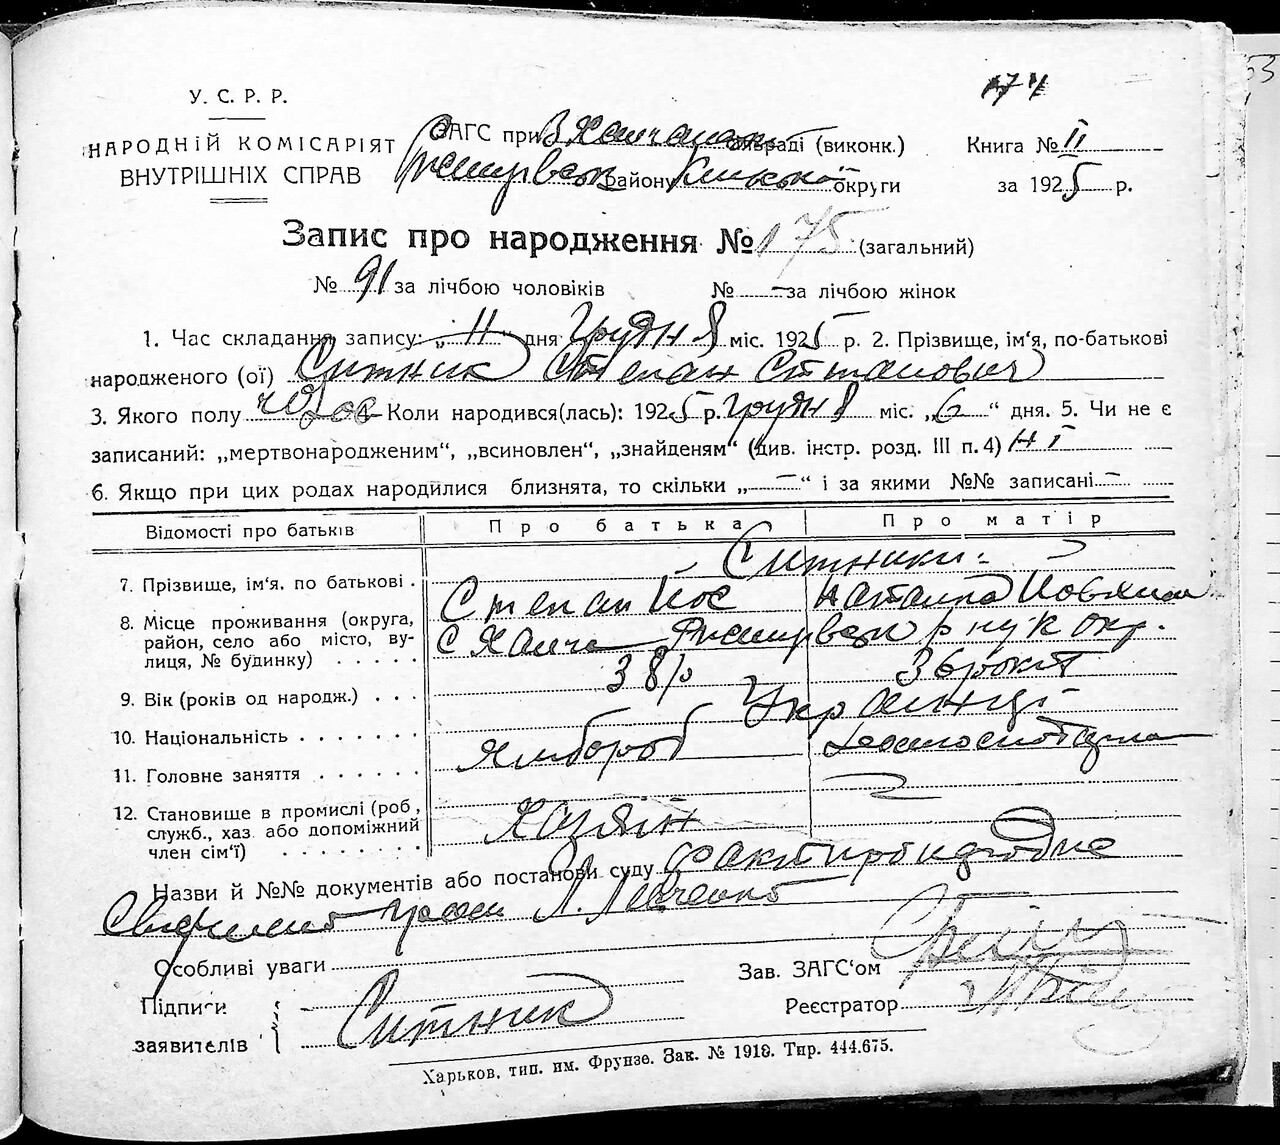 174
53
У. С. Р. Р.
НАРОДНІЙ КОМІСАРІЯТ
ВНУТРІШНІХ СПРАВ
ЗАГС при (виконк.)
району округи
Книга № II
за 1925 р.
Запис про народження № 175 (загальний)
№ 91 за лічбою чоловіків № – за лічбою жінок
1. Час складання запису: „11“ дня грудня міс. 1925 р. 2. Прізвище, ім'я, по-батькові
народженого (ої) Ситник Степан Степанович
3. Якого полу чолов Коли народився(лась): 1925 р. грудня міс. „6“ дня. 5. Чи не є
записаний: „мертвонародженим“, „всиновлен“, „знайденям“ (див. інстр. розд. III п. 4) ні
6. Якщо при цих родах народилися близнята, то скільки „–“ і за якими №№ записані –
Відомості про батьків Про батька Про матір
Ситники
7. Прізвище, ім'я, по батькові . Степан Йос Наталка
8. Місце проживання (округа,
район, село або місто, ву-
лиця, № будинку) . . . . .
9. Вік (років од народж.) . . . 38 р 36 років
10. Національність . . . . . . . Українці
11. Головне заняття . . . . . . Хлібороб
12. Становище в промислі (роб,
служб., хаз. або допоміжний
член сім'ї) . . . . . . . Хазяїн
Назви й №№ документів або постанови суду
Л. Левченко
Особливі уваги
Зав. ЗАГС'ом
Підписи
заявителів Ситник
Реєстратор
Харьков, тип. им. Фрунзе. Зак. № 1918. Тир. 444.675.